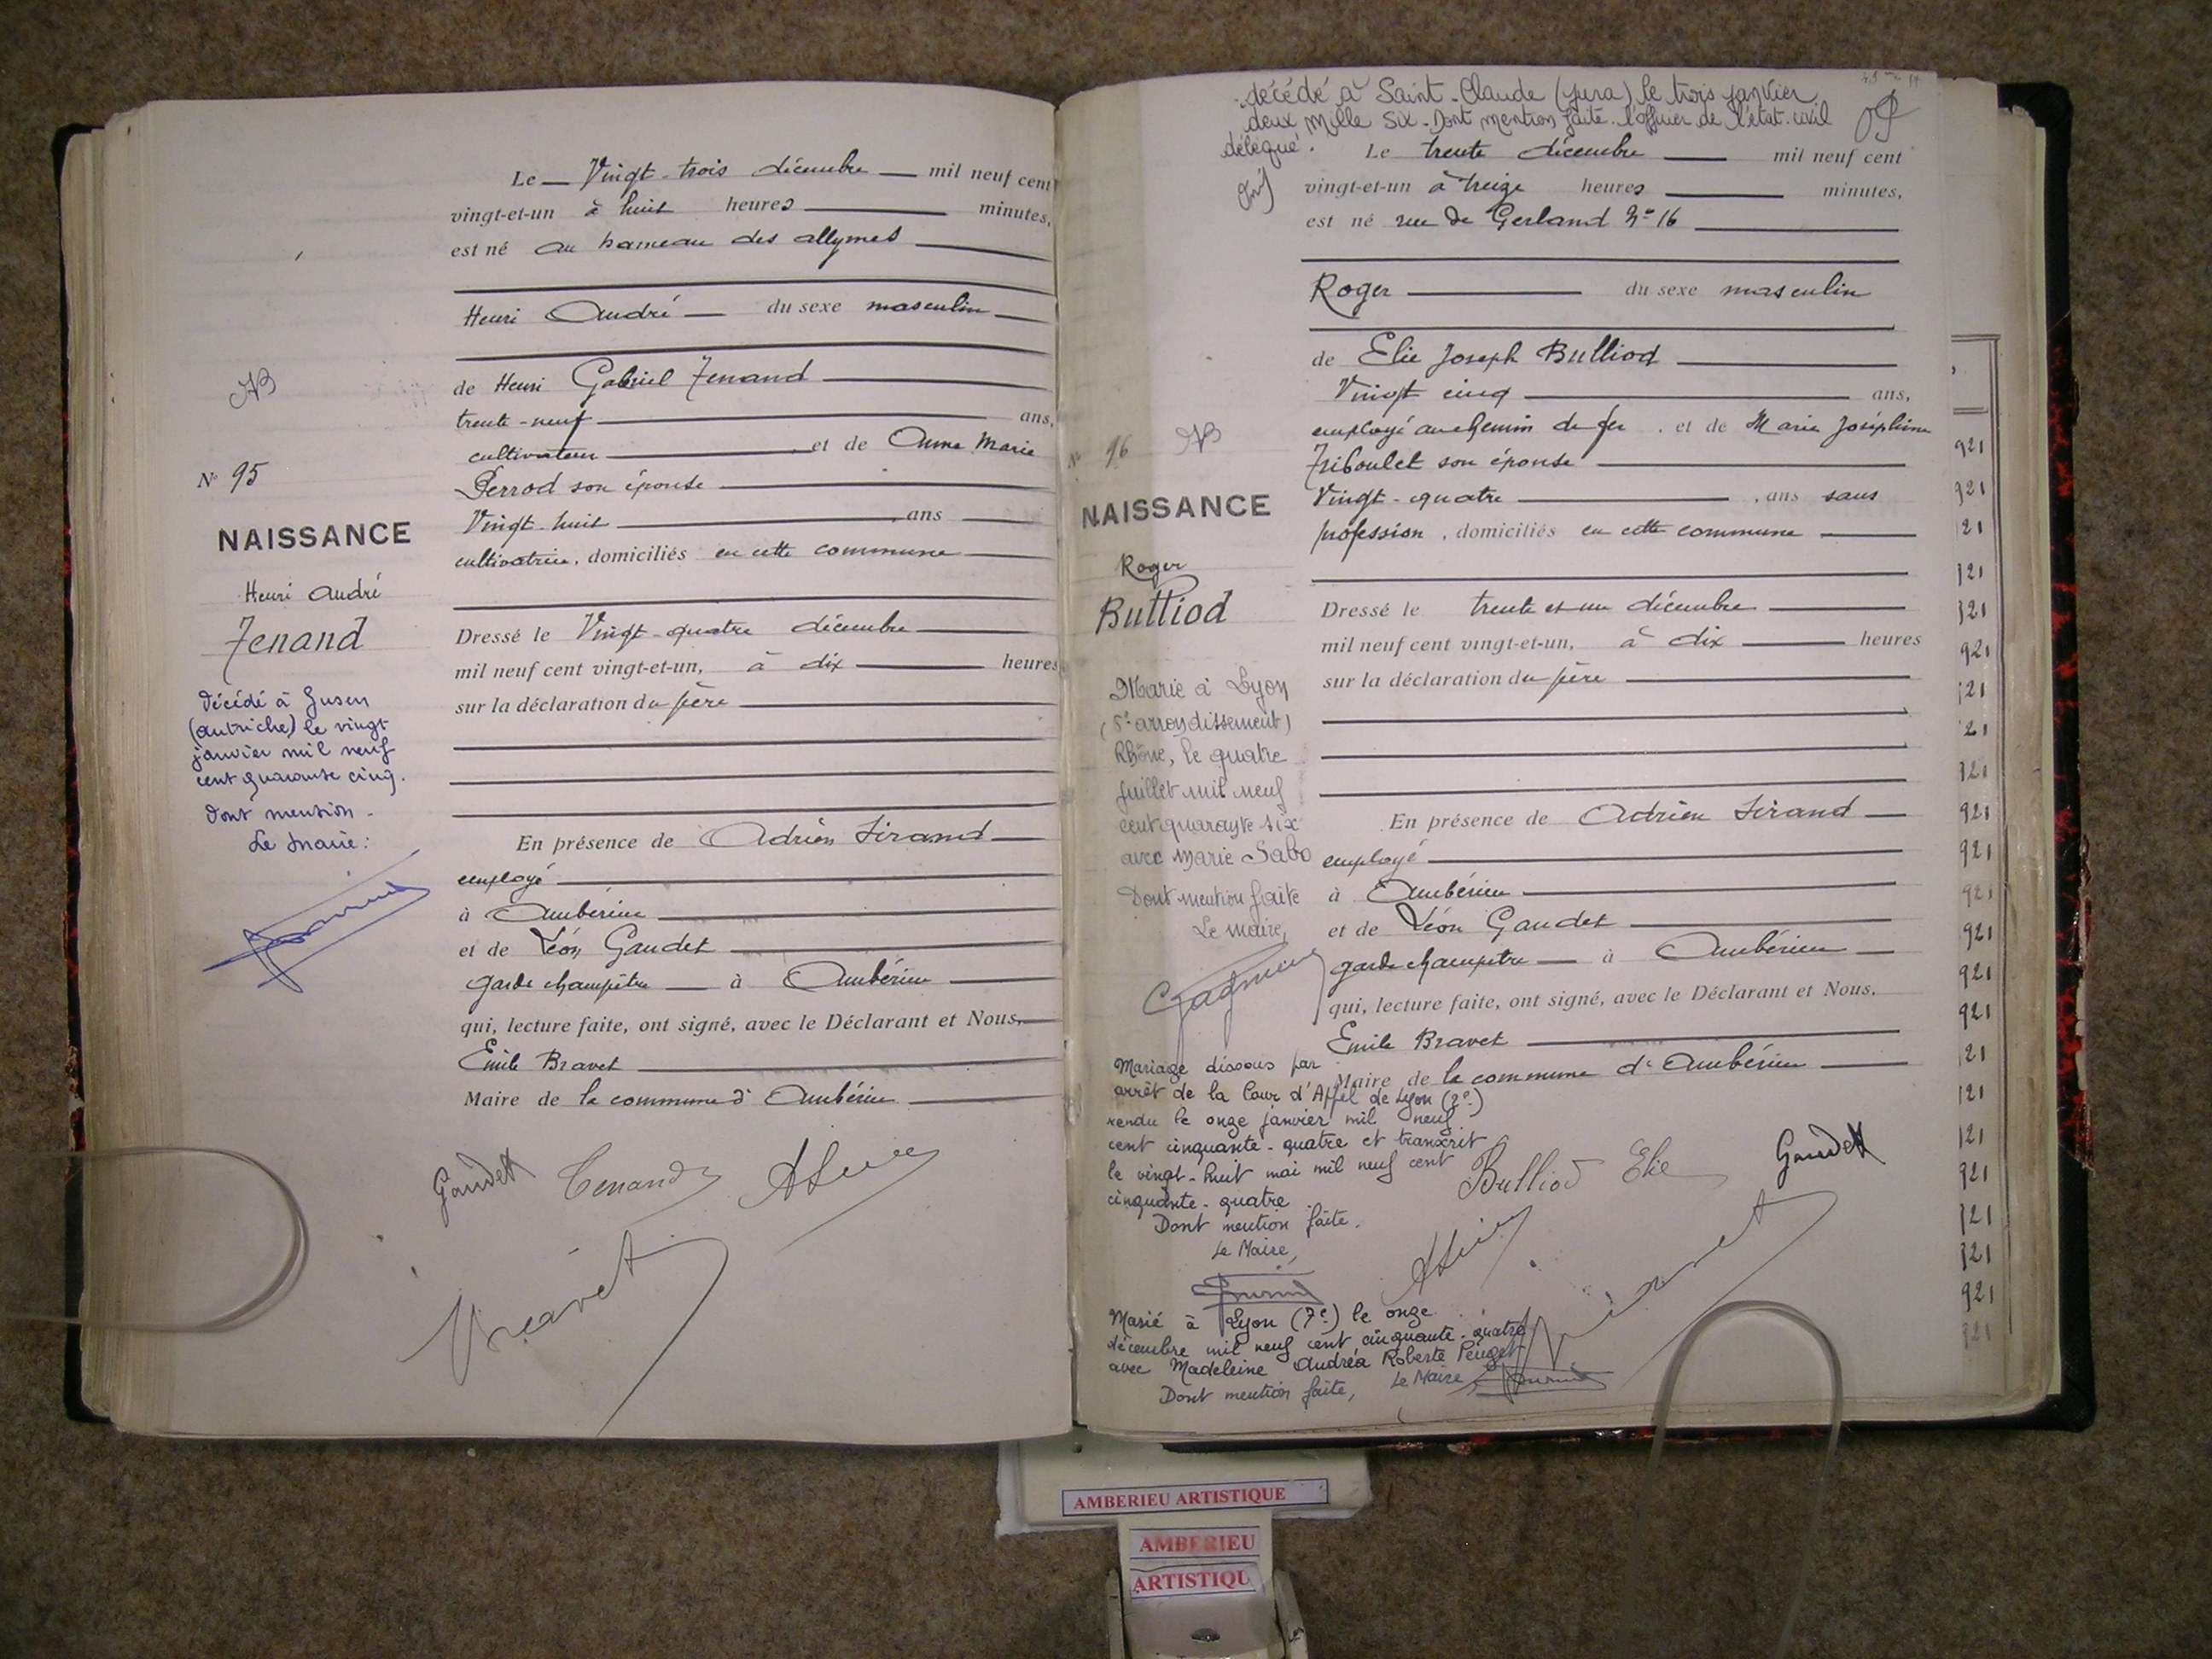 Le Vingt-trois décembre mil neuf cent
vingt-et-un à huit heures minutes,
est né au hameau des allymes
Henri André du sexe masculin
de Henri Gabriel Tenand
trente-neuf ans,
cultivateur et de Anne Marie
Perrod son épouse
Vingt-huit ans
cultivatrice, domiciliés en cette commune
Dressé le Vingt-quatre décembre
mil neuf cent vingt-et-un, à dix heures
sur la déclaration du père
En présence de Adrien Sirand
employé
à Ambérieu
et de Léon Gaudet
garde champêtre à Ambérieu
qui, lecture faite, ont signé, avec le Déclarant et Nous,
Emile Bravet
Maire de la commune d'Ambérieu
Gaudet Tenand
Bravet
AB
N° 95
NAISSANCE
Henri André
Tenand
Décédé à Gusen
(autriche) le vingt
janvier mil neuf
cent quarante cinq.
Dont mention -
Le Maire:
décédé à Saint-Claude (Jura) le trois janvier
deux mille six. Dont mention faite. l'officier de l'état-civil
délégué.
Le trente décembre mil neuf cent
vingt-et-un à treize heures minutes,
est né rue de Gerland N° 16
Roger du sexe masculin
de Elie Joseph Bulliod
Vingt cinq ans,
employé au chemin de fer, et de Marie Joséphine
Triboulet son épouse
Vingt-quatre, ans sans
profession, domiciliés en cette commune
Dressé le trente et un décembre
mil neuf cent vingt-et-un, à dix heures
sur la déclaration du père
En présence de Adrien Sirand
employé
à Ambérieu
et de Léon Gaudet
garde champetre à Ambérieu
qui, lecture faite, ont signé, avec le Déclarant et Nous,
Emile Bravet
Maire de la commune d'Ambérieu
Bulliod Elie Gaudet
Bravet
N° 96
AB
NAISSANCE
Roger
Bulliod
Marié à Lyon
(5e arrondissement)
Rhône, le quatre
juillet mil neuf
cent quarante six
avec Marie Sabo
Dont mention faite
Le Maire,
Mariage dissous par
arrêt de la Cour d'Appel de Lyon (2e)
rendu le onze janvier mil neuf
cent cinquante-quatre et transcrit
le vingt-huit mai mil neuf cent
cinquante-quatre
Dont mention faite.
Le Maire,
Marié à Lyon (7e) le onze
décembre mil neuf cent cinquante-quatre
avec Madeleine Andréa Roberte Peuget
Dont mention faite, Le Maire
921
921
21
921
921
921
921
921
921
921
AMBERIEU ARTISTIQUE
AMBERIEU
ARTISTIQU